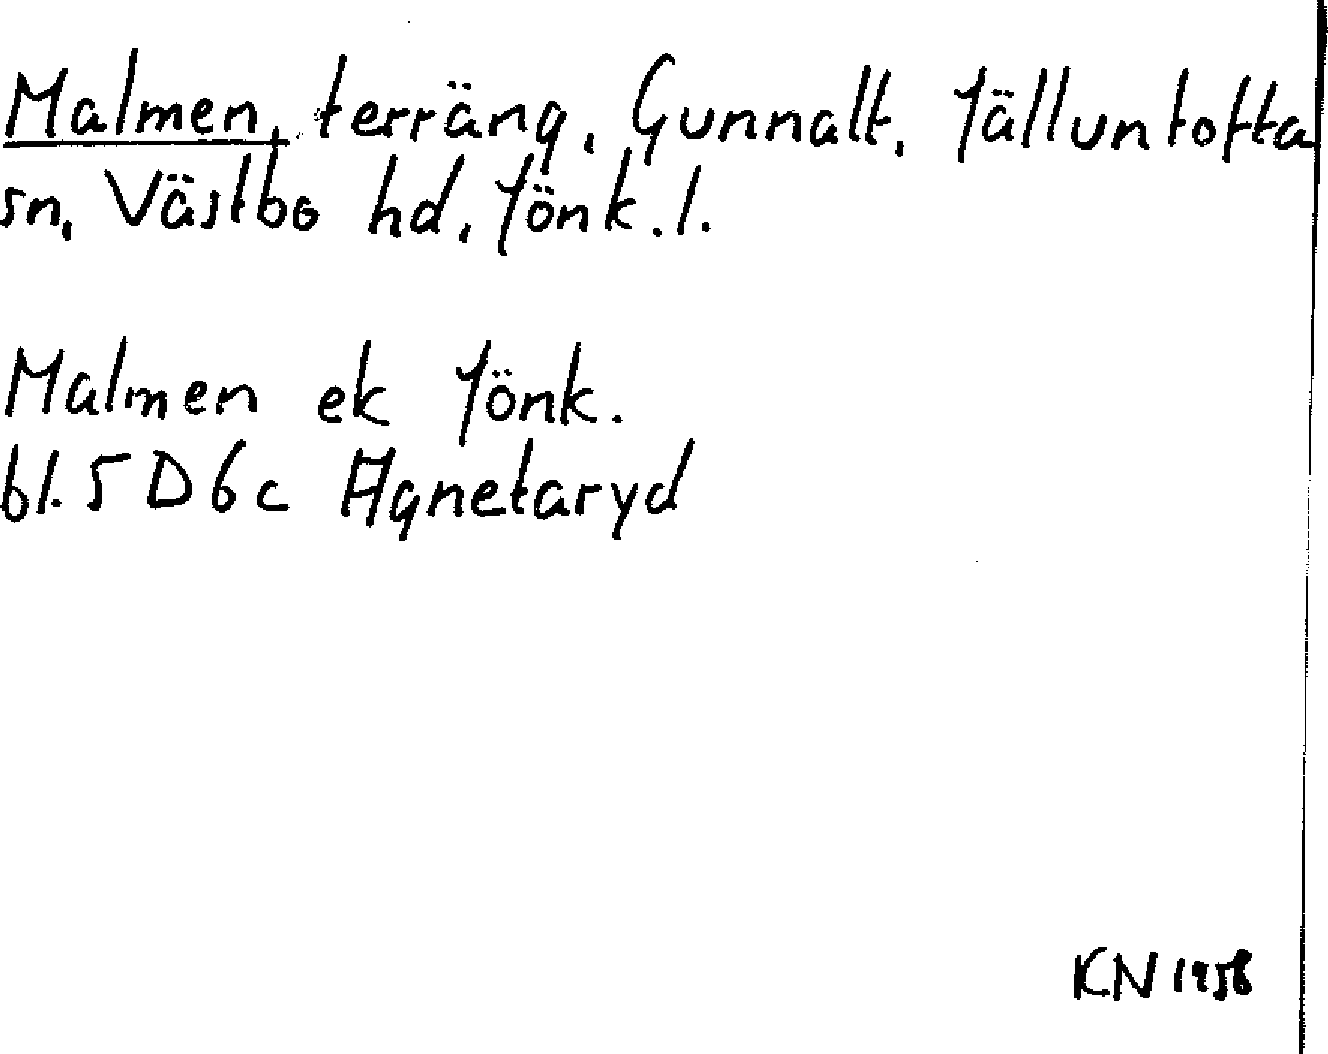 Malmen, terräng, Gunnalt, Jälluntofta
sn, Västbo hd, Jönk.l.
Malmen ek Jönk.
bl. 5 D 6 c Agnetaryd
KN 1958